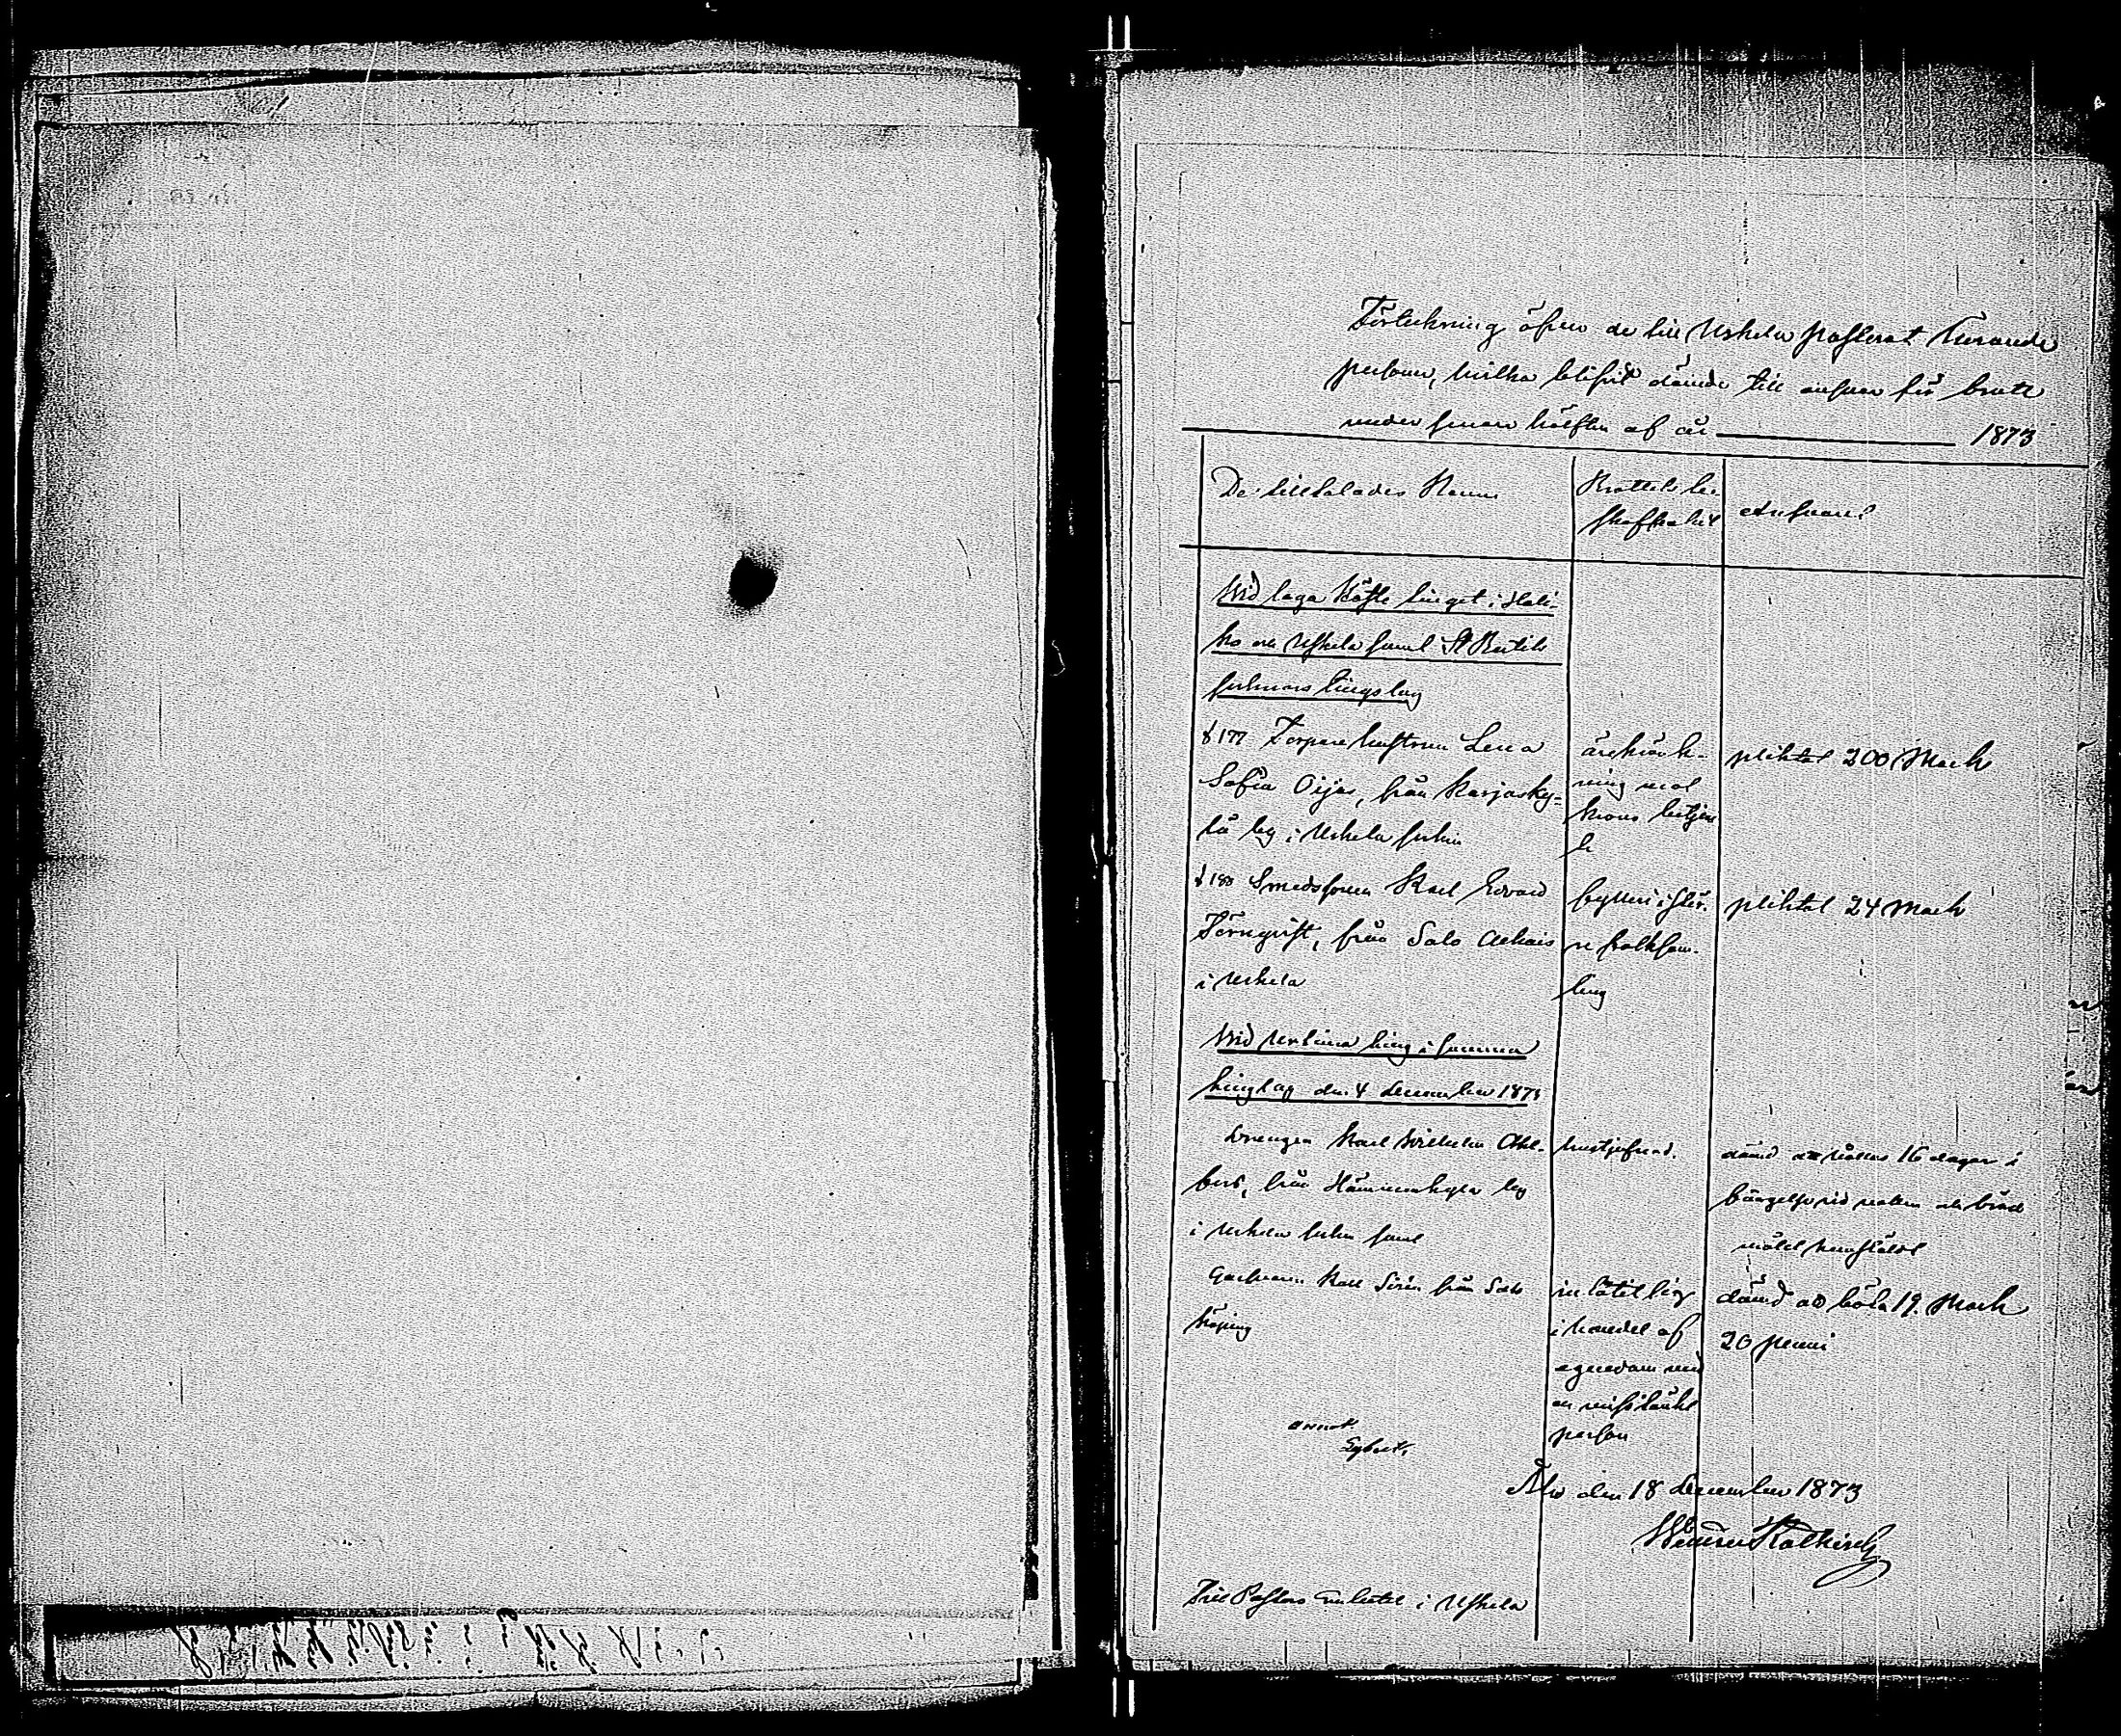 Förteckning öfver de till Uskela pastorat hörande
personer, hvilka blifvit dömde till ansvar för brott
under senare hälften af år 1873
De tilltalades Namn
Brottets be-
skaffenhet
Ansvar
Wid laga Höste tinget i Hali-
ko och Uskela samt St Bertils
socknars tingslag
§ 177 Torpare hustrun Lena
Sofia Oijas, från Karjasky-
lä by i Uskela socken
ärekränk-
ning mot
krono betjen
te
pliktat 200 Mark
§ 188 Smedssonen Karl Edvard
Törnqvist, från Salo
i Uskela
fylleri i stör-
re folksam-
ling
pliktat 24 Mark
Wid Urtima ting i samma
tingslag den 4 December 1873
Drengen Karl Wilhelm
från by
i Uskela socken samt
dömd att hållas 16 dagar i
fängelse vid vatten och bröd
målet hemstäldt
Garfvaren Karl från Salo
köping
i handel af
egendom med
en misstänkt
person
dömd att böta 19 Mark
20 penni
Åbo den 18 December 1873
Till Pastors Embetet i Uskela